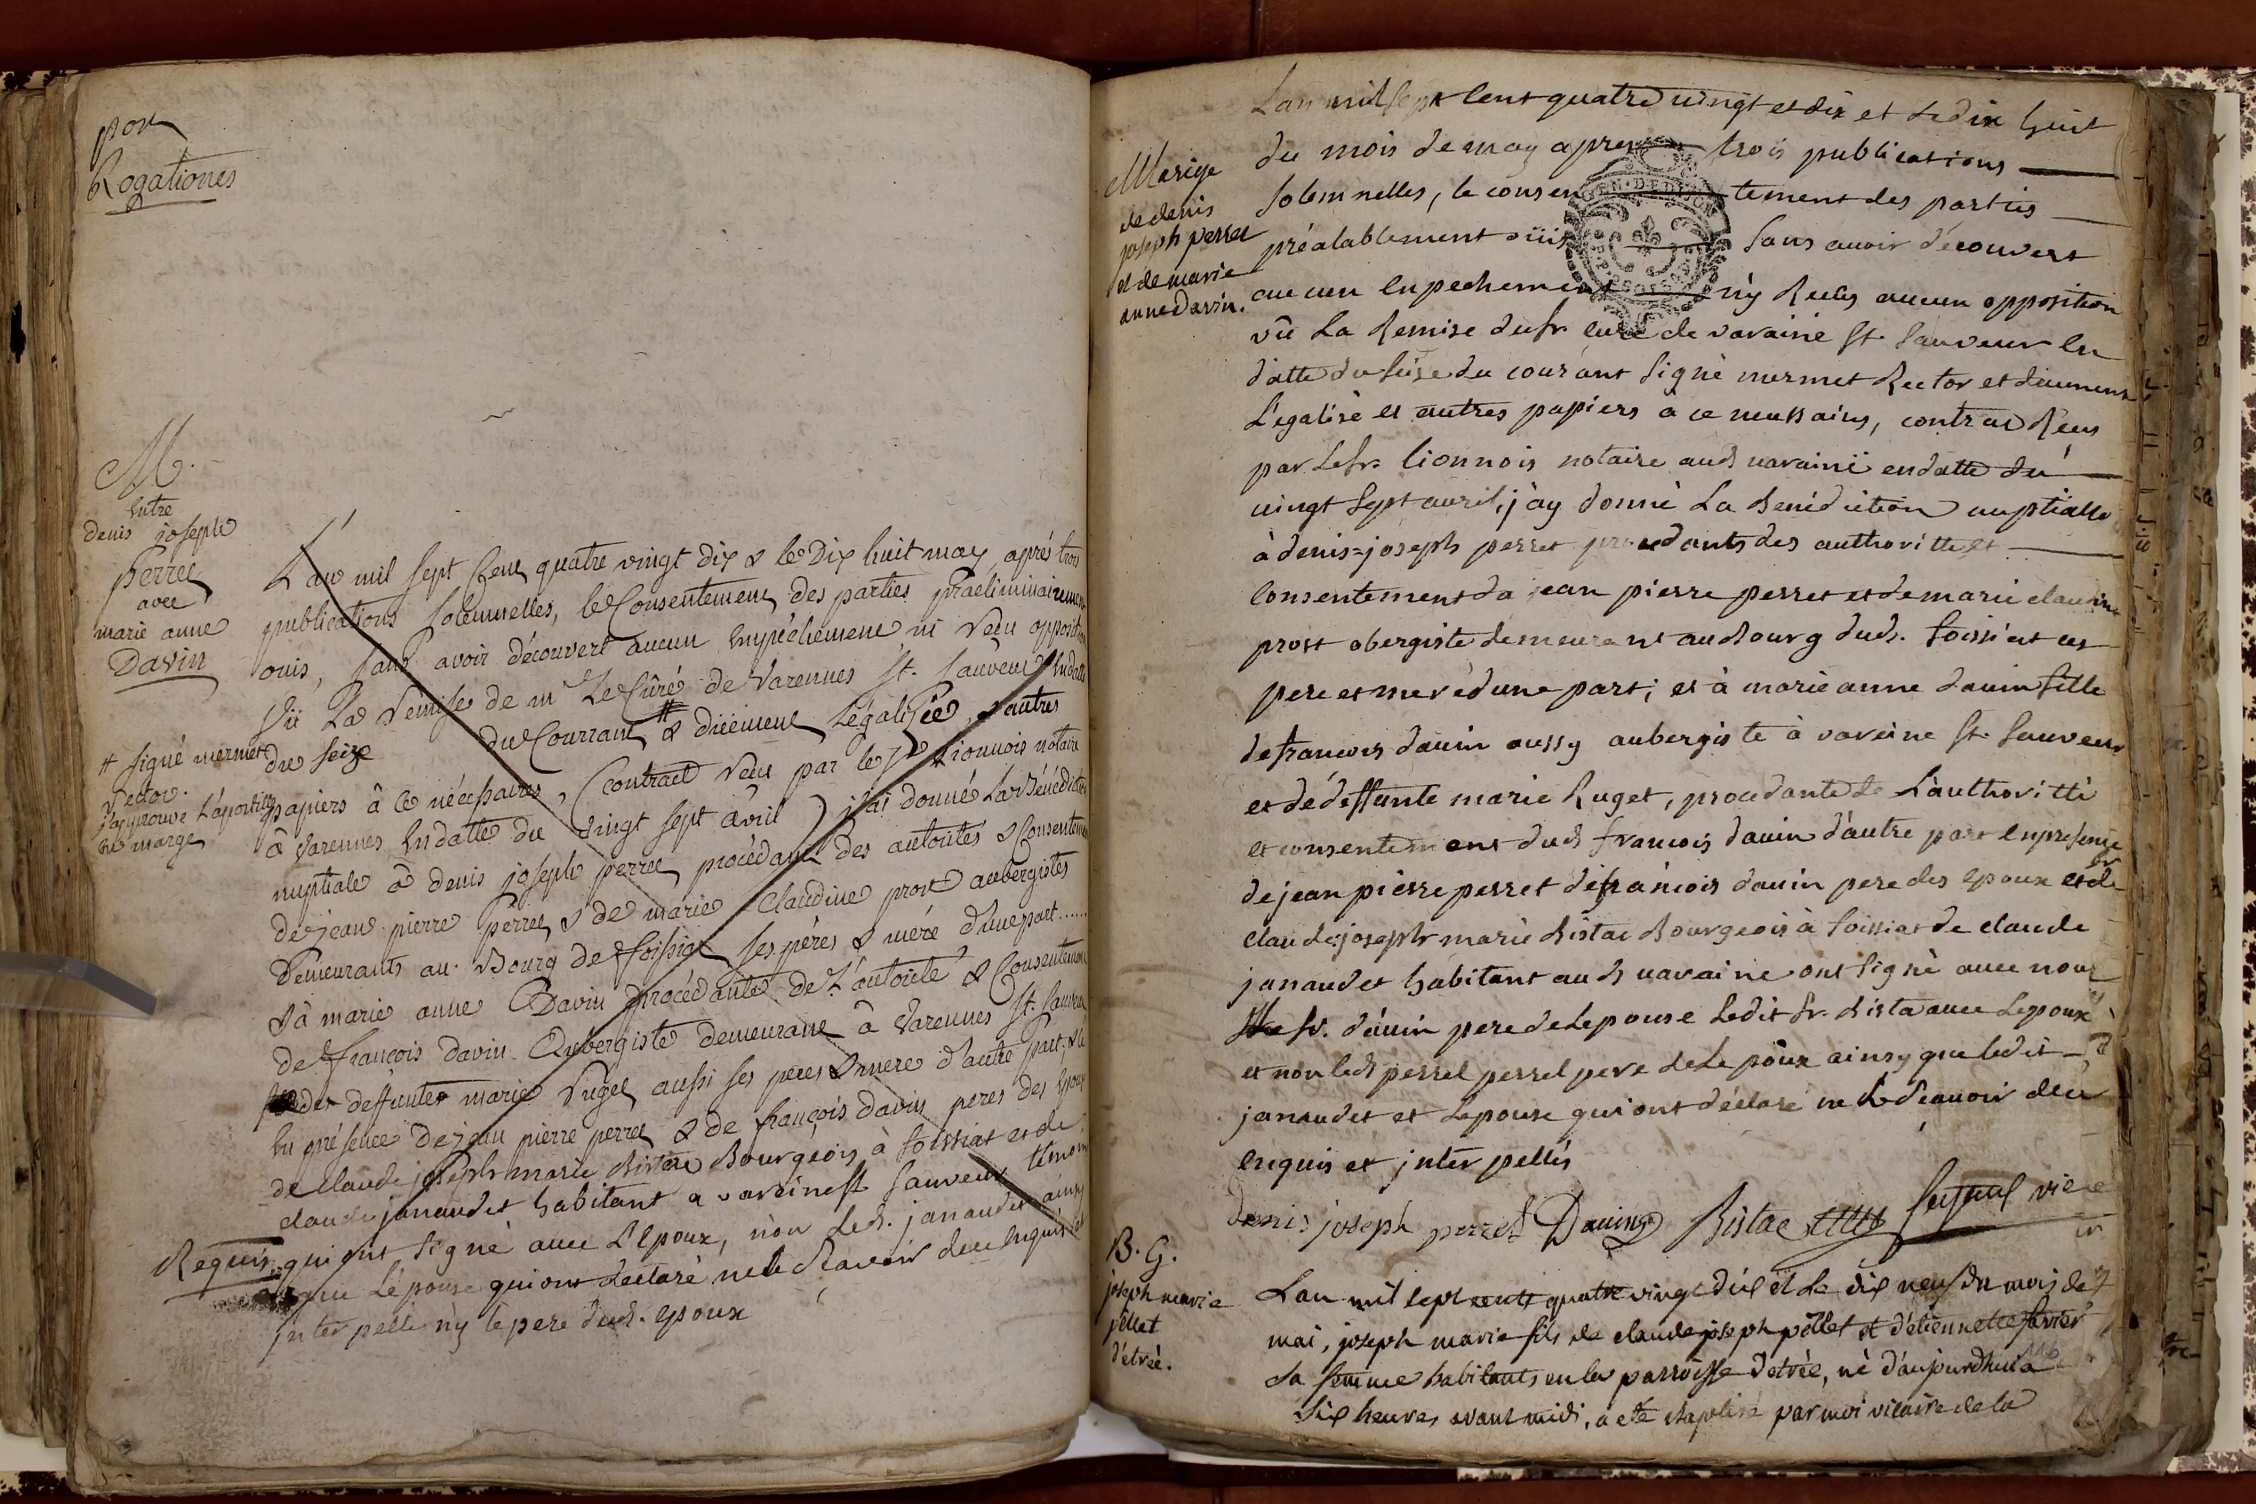 por
Rogationes
M.
Entre
denis joseph
perret
avec
marie anne
Davin
L'an mil sept Cent quatre vingt dix & le Dix huit may, après trois
publications solemnelles, le Consentement des parties praeliminairement
ouis, sans avoir découvert aucun Empéchement ni Recu opposition
Vü La Remise de m Le Curé de Varennes St. Sauveur En datte
du seize du Courrant # & düement Légalisée, & autres
# signé mermet
Rector.
j'approuve L'apostille
En marge
papiers â ce nécessaires, Contract Recu par le Sr Lionnois notaire
â Varennes En datte du vingt sept avril j'ai donné La Bénédiction
nuptiale â denis joseph perret, procédant des autorités & Consentement
de jean pierre perret & de marie Claudine prost aubergistes
Demeurants au Bourg de foissiat ses péres & mére d'une part......
& à marie anne Davin procédante de L'autorité & Consentement
de françois davin Aubergiste demeurant â Varennes St. Sauveur
de deffunte marie Ruget aussi ses peres & mere d'autre part, & le
En présence de jean pierre perret & de françois davin peres des Epoux
de claude joseph marie Bistac Bourgeois à foissiat et de
claude janaudet habitant a varaine st Sauveur témoins
Requis, qui ont signé avec L'Epoux, non led. janaudet ainsy
que Lépouse qui ont declaré ne le Scavoir deue Enquis et
jnterpellé ny le pere dud. epoux
Marige
de denis
joseph perret
et de marie
anne Davin.
Lan mil sept Cent quatre vingt et dix et le dix huit
du mois de may apres trois publications
solemnelles, le consentement des partis
préalablement oüis sans avoir découvert
aucun Enpechement ny Recus aucun opposition
vû La Remise du sr curé de varaine St. Sauveur En
datte du seise du courant signé mermet Rector et düement
Légalisé et autres papiers a ce nessaires, contrac Recu
par le sr. lionnois notaire aud varaine en datte du
vingt sept avril, j'ay donné La Benédiction nuptialle
à denis=joseph perret procedants des authorittés et
Consentement da jean pierre perret et de marie claudine
prost obergiste demeurant au Bourg dud. foissiat ses
pere et mere d'une part; et à marie anne davin fille
de francois davin aussy aubergiste à varaine St. Sauveur
et dé deffunte marie Ruget, procedante de L'authoritté
et consentement dud francois davin d'autre part En presence
de jean pierre perret de francois davin pere des epoux et de
claude=joseph marie Bistac Bourgeois à foissiat de claude
janaudet habitant aud varaine ont signé avec nous
le sr. davin pere de Lepouse Ledit sr. Bistac avec Lepoux
et non led perret perret pere de Le poux ainsy que ledit
janaudet et Lepouse qui ont déclaré ne le scavoir deu
enquis et jnterpellés
denis joseph perret Davin Bistac vic
B. G.
joseph marie
pellet
d'étrée.
L'an mil sept cents quatre vingt dix et le dix neuf du mois de
mai, joseph marie fils de claude joseph pellet et d'étiennette favier
sa femme habitants en la parroisse d'etrée, né d'aujourdhui a
six heures avant midi, a été baptisé par moi vicaire de la